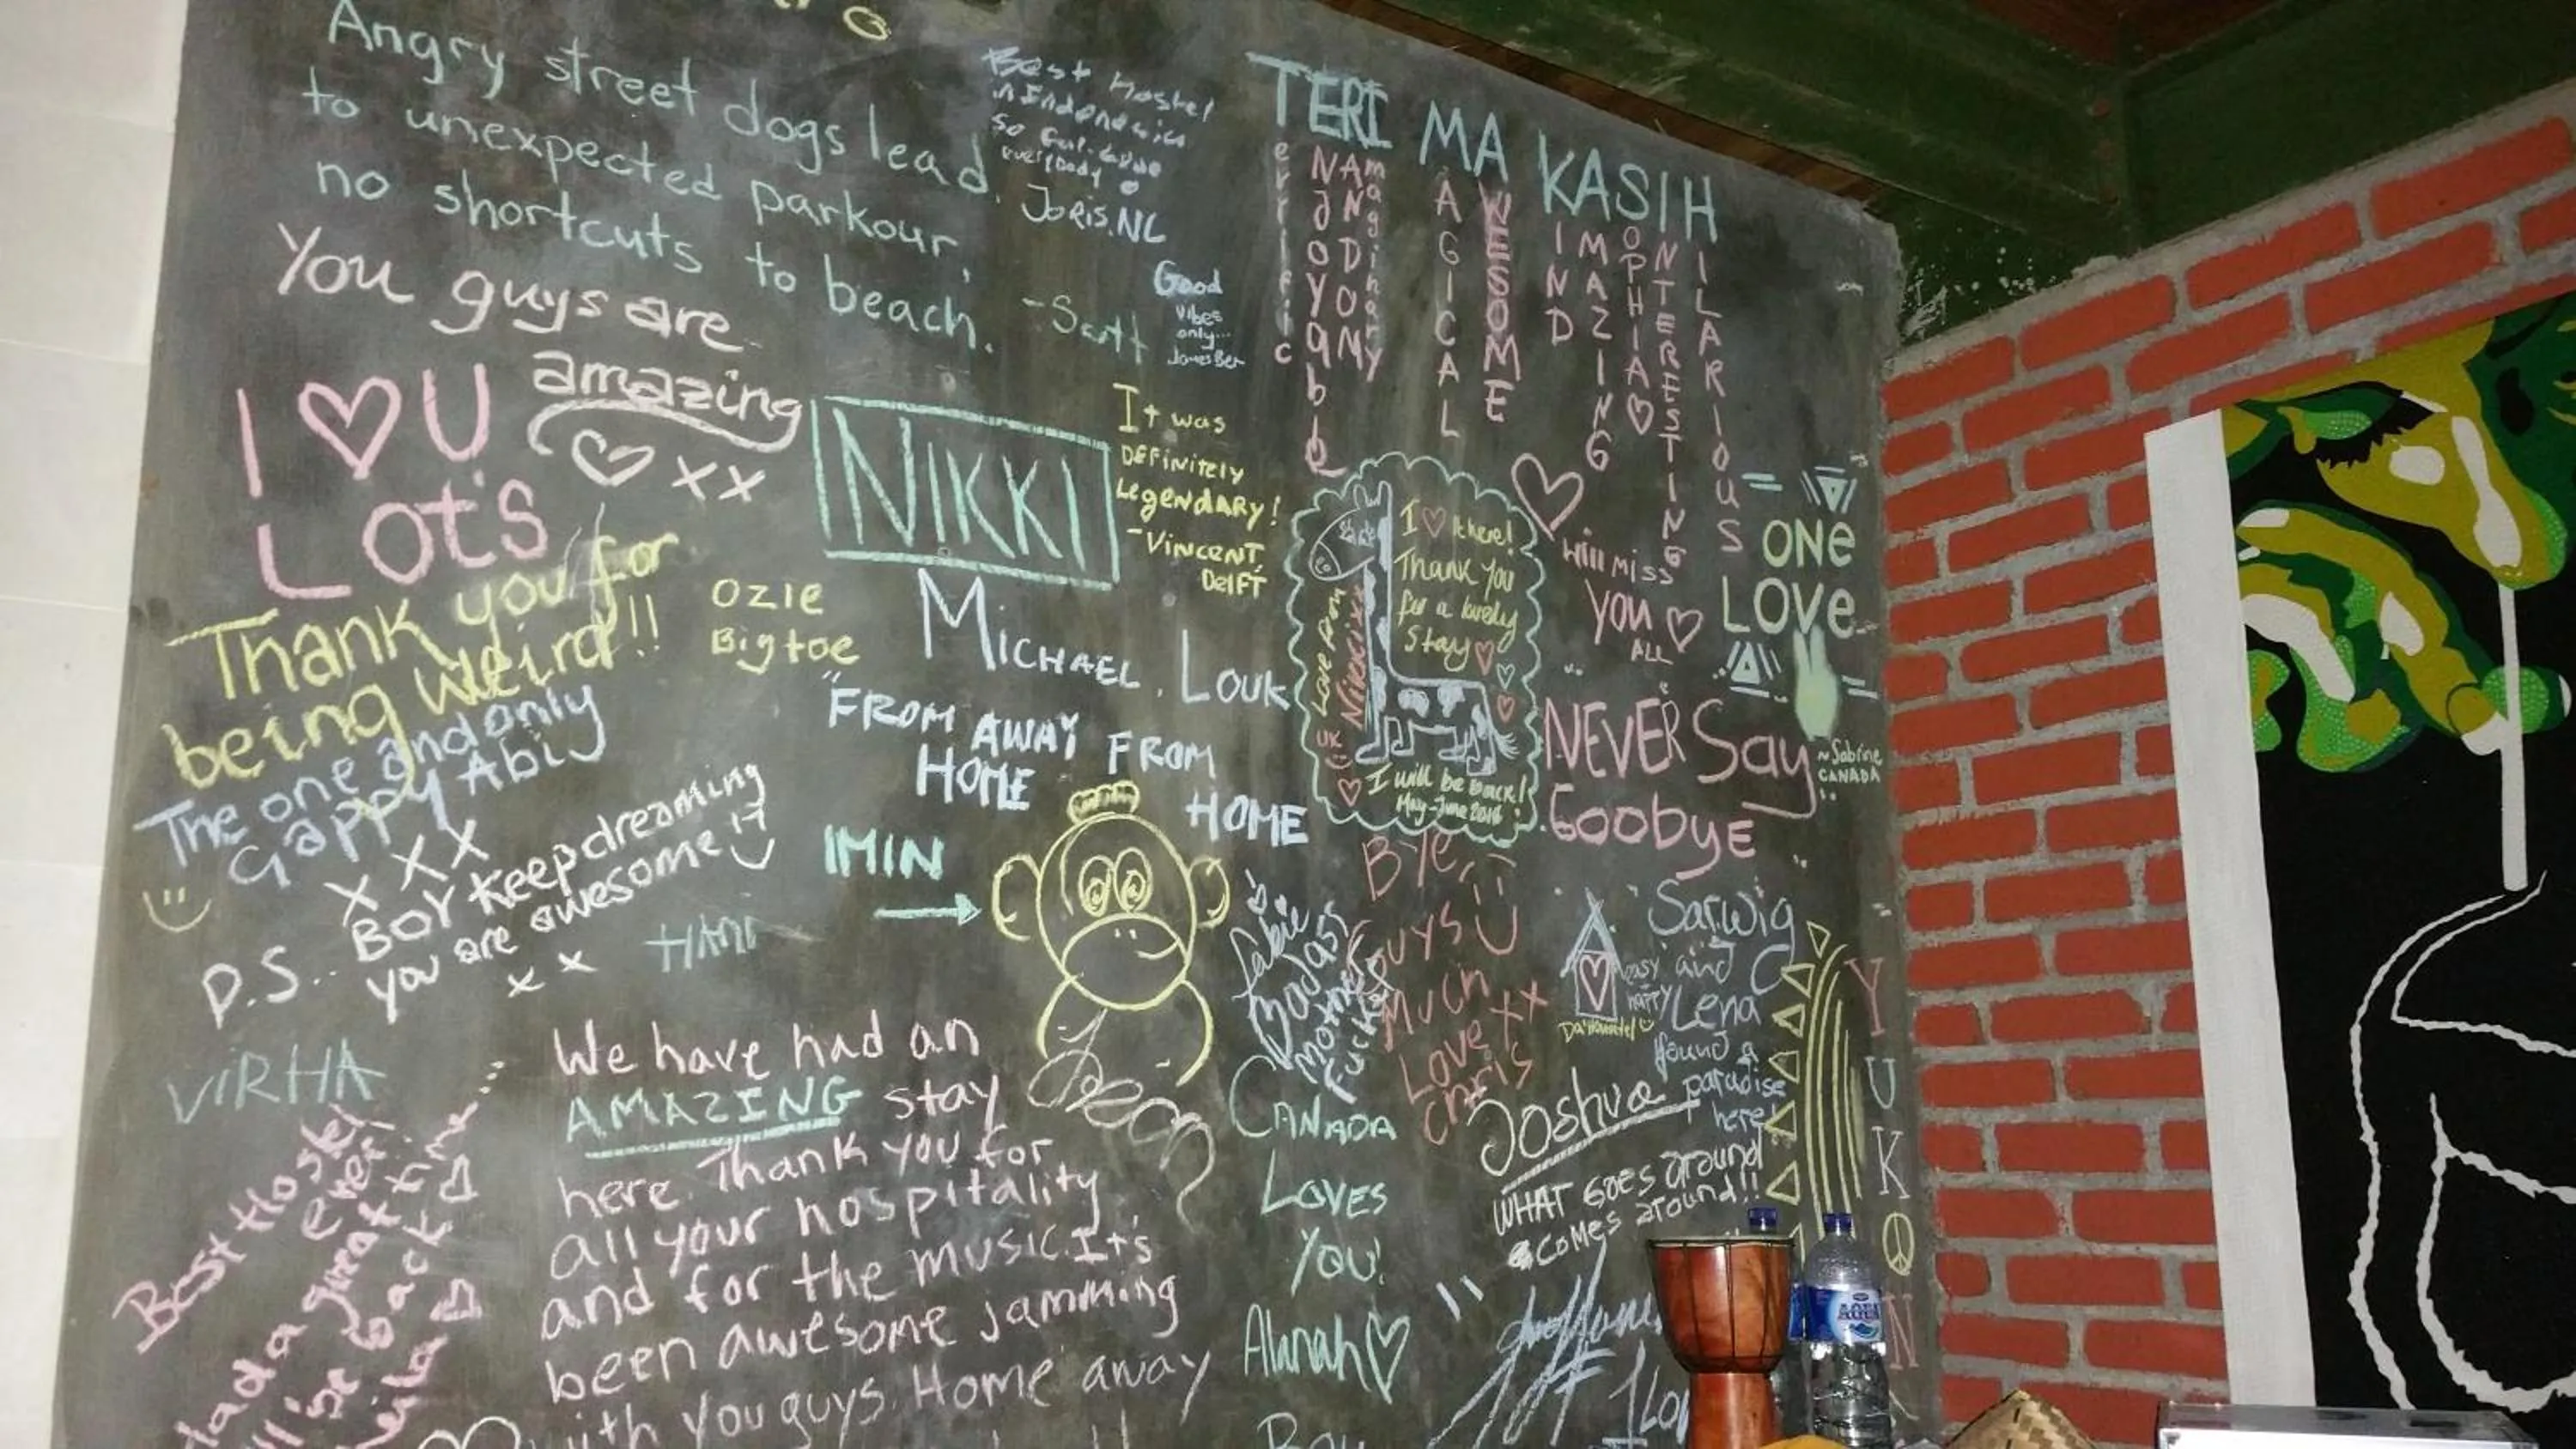 Angry street dogs lead
to unexpected parkour,
no shortcuts to beach.
-Scott
Best Hostel
in Indonesia
so far. Love
everybody
JORIS.NL
Good
vibes
only...
James Ben
TERI MA KASIH
errific
NJOYABLE
AND
magihary
DOMY
AGICAL
WESOME
IND
MAZING
OPHIA
NTERESTING
ILARIOUS
You guys are
amazing
XX
I ♡ U
Lots
NIKKI
It was
DEFinitely
LegenDARy!
-Vincent,
DelFT
Thank you for
being weird!!
The one and only
Gappy Abi
X X X
P.S.. BOY keep dreaming
you are awesome
x x
OZIE
Bigtoe
MICHAEL. LOUK
"FROM AWAY FROM
HOME
HOME
IMIN
HANI
I ♡ it here!
Thank you
for a lovely
Stay ♡
Love from
Nikki xx
UK
I will be back!
May-June 2016
Will miss
You ♡
ALL
ONE
LOVE
~Sabrine
CANADA
NEVER Say
Goobye
Bye
Guys
Much
Love xx
Chris
Sarwig
and
Lena
found a
paradise
here!
easy
happy
VIRHA
Best Hostel
ever!
We have had an
AMAZING stay
here. Thank you for
all your hospitality
and for the music. It's
been awesome jamming
with you guys. Home away
Dean
CANADA
LOVES
YOU!
Alanah ♡
Joshua
WHAT Goes around
comes around!!
Y
U
K
O
N
AQUA